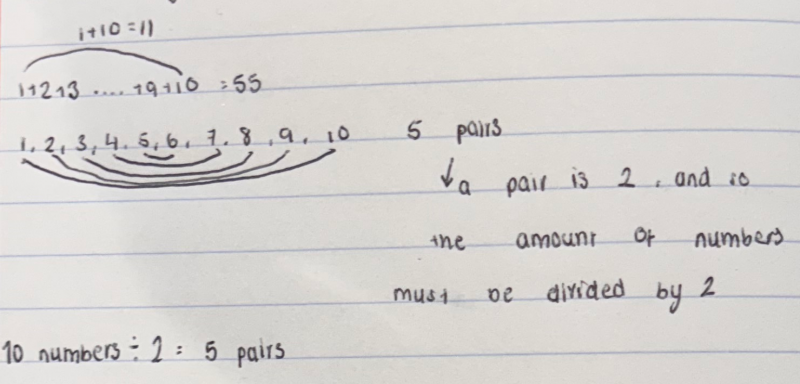 1+10=11
1+2+3 .... +9+10 =55
1, 2, 3, 4, 5, 6, 7, 8, 9, 10 5 pairs
↓ a pair is 2, and so
the amount of numbers
must be divided by 2
10 numbers ÷ 2 = 5 pairs